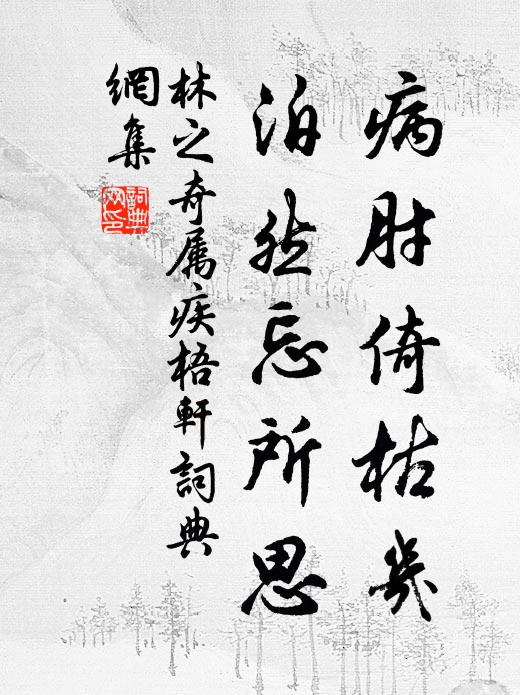 病肘倚枯几
泊然忘所思
林之奇属疾梧軒詞典
網集
詞典网印